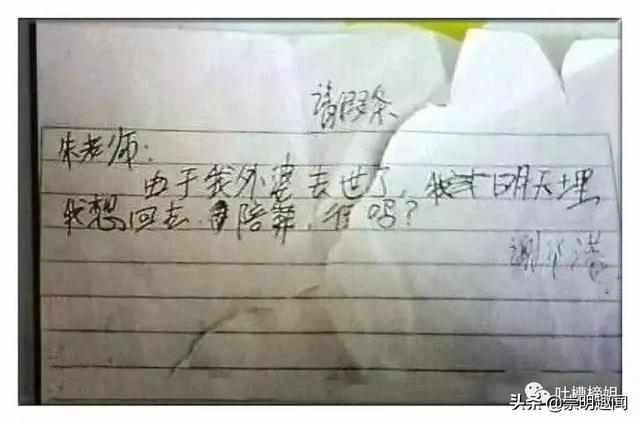 请假条
朱老师：
由于我外婆去世了，我才明天埋
我想回去 陪葬，行吗？
吐槽榜姐
头条@崇明趣闻